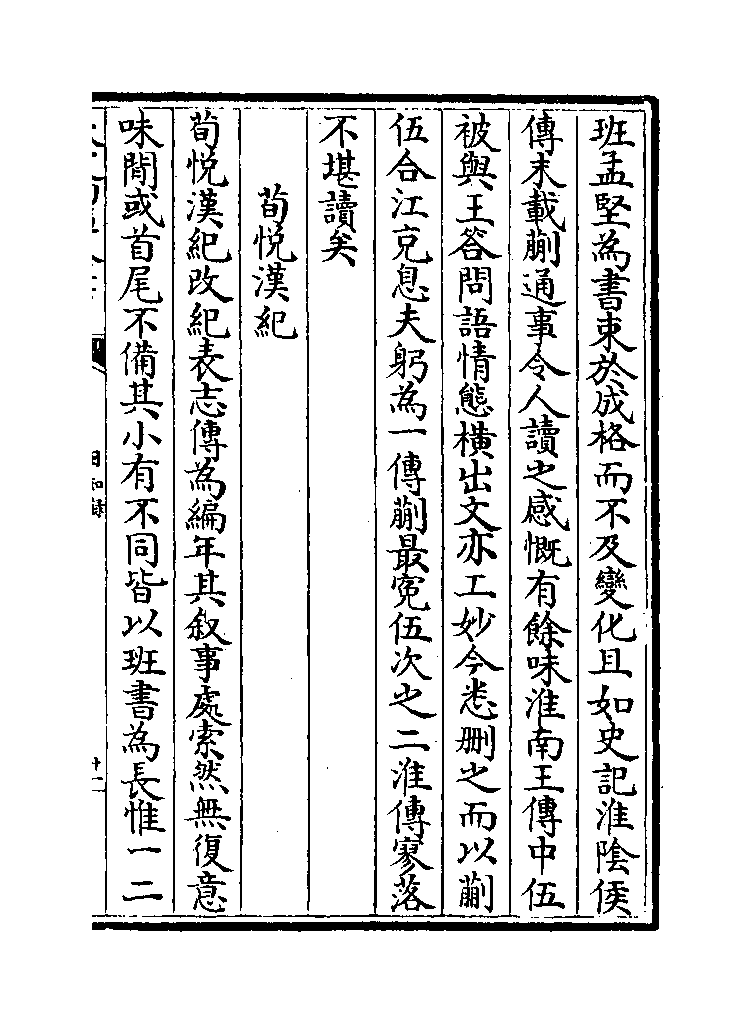 班孟堅為書束於成格而不及變化且如史記淮陰侯
傳末載蒯通事令人讀之感慨有餘味淮南王傳中伍
被與王答問語情態橫出文亦工妙今悉刪之而以蒯
伍合江充息夫躬為一傳蒯最寃伍次之二淮傳寥落
不堪讀矣
荀悅漢紀
荀悅漢紀改紀表志傳為編年其叙事處索然無復意
味閒或首尾不備其小有不同皆以班書為長惟一二
日知錄